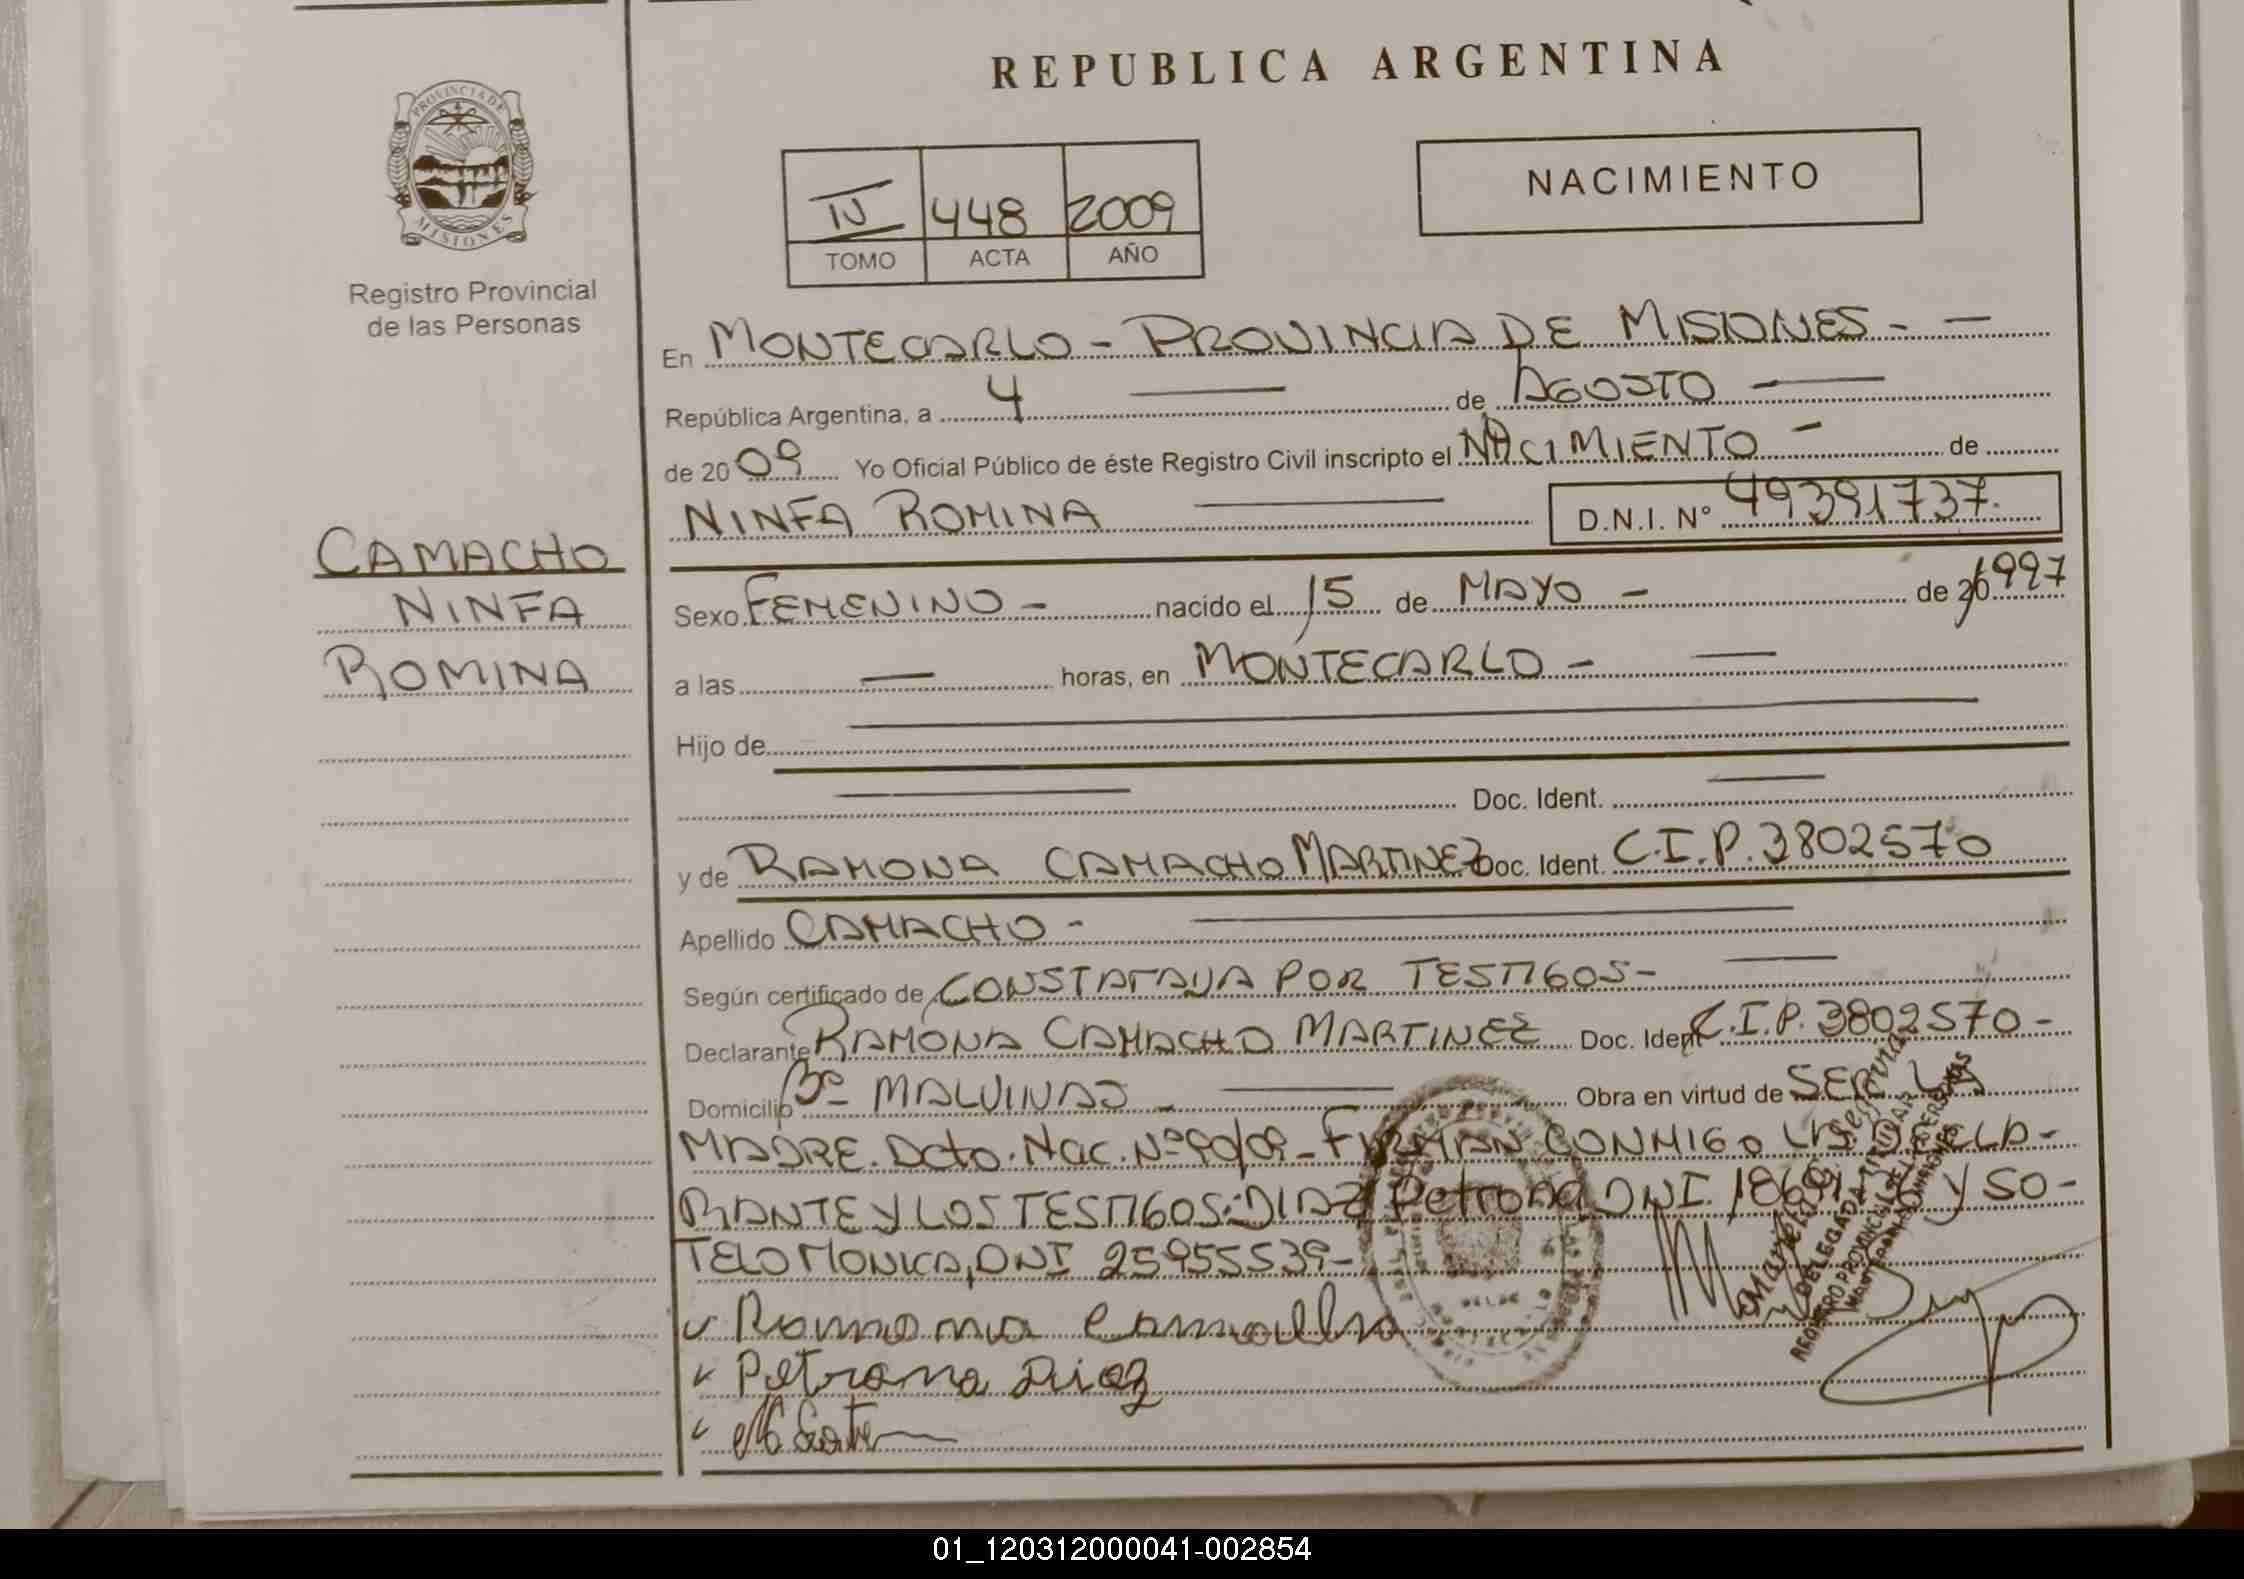 REPUBLICA ARGENTINA
PROVINCIA DE
MISIONES
Registro Provincial
de las Personas
IV 448 2009
TOMO ACTA AÑO
NACIMIENTO
En MONTECARLO - PROVINCIA DE MISIONES - -
República Argentina, a 4 de AGOSTO
de 2009 Yo Oficial Público de éste Registro Civil inscripto el NACIMIENTO - de
NINFA ROMINA D.N.I. Nº 49391737.
CAMACHO
NINFA
ROMINA
Sexo FEMENINO - nacido el 15 de MAYO - de 1997
a las — horas, en MONTECARLO -
Hijo de
Doc. Ident.
y de RAMONA CAMACHO MARTINEZ Doc. Ident. C.I.P. 3802570
Apellido CAMACHO -
Según certificado de CONSTATADA POR TESTIGOS -
Declarante RAMONA CAMACHO MARTINEZ Doc. Ident. C.I.P. 3802570 -
Domicilio Bº MALVINAS - Obra en virtud de SER LA
MADRE. Dcto. Nac. Nº 90/09 - FIRMAN CONMIGO LA DECLA-
RANTE Y LOS TESTIGOS: DIAZ Petrona DNI. Y SO-
TELO MONICA, DNI 25955539 -
Ramona Camacho
Petrona Diaz
DELEGADA TITULAR
REGISTRO PROVINCIAL DE LAS PERSONAS
01_120312000041-002854